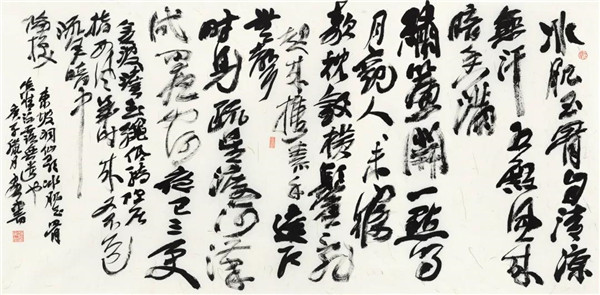 冰肌玉骨自清涼
無汗水殿風來
暗香滿
繡簾開一點明
月窺人人未寢
欹枕釵橫鬢亂
起來攜素手庭戶
無聲
時見疏星渡河漢
試問夜何夜已三更
金波淡玉繩低轉但屈
指西風幾時來又不道
流年暗中
偷換
東坡洞仙歌冰肌玉骨
庚子月書